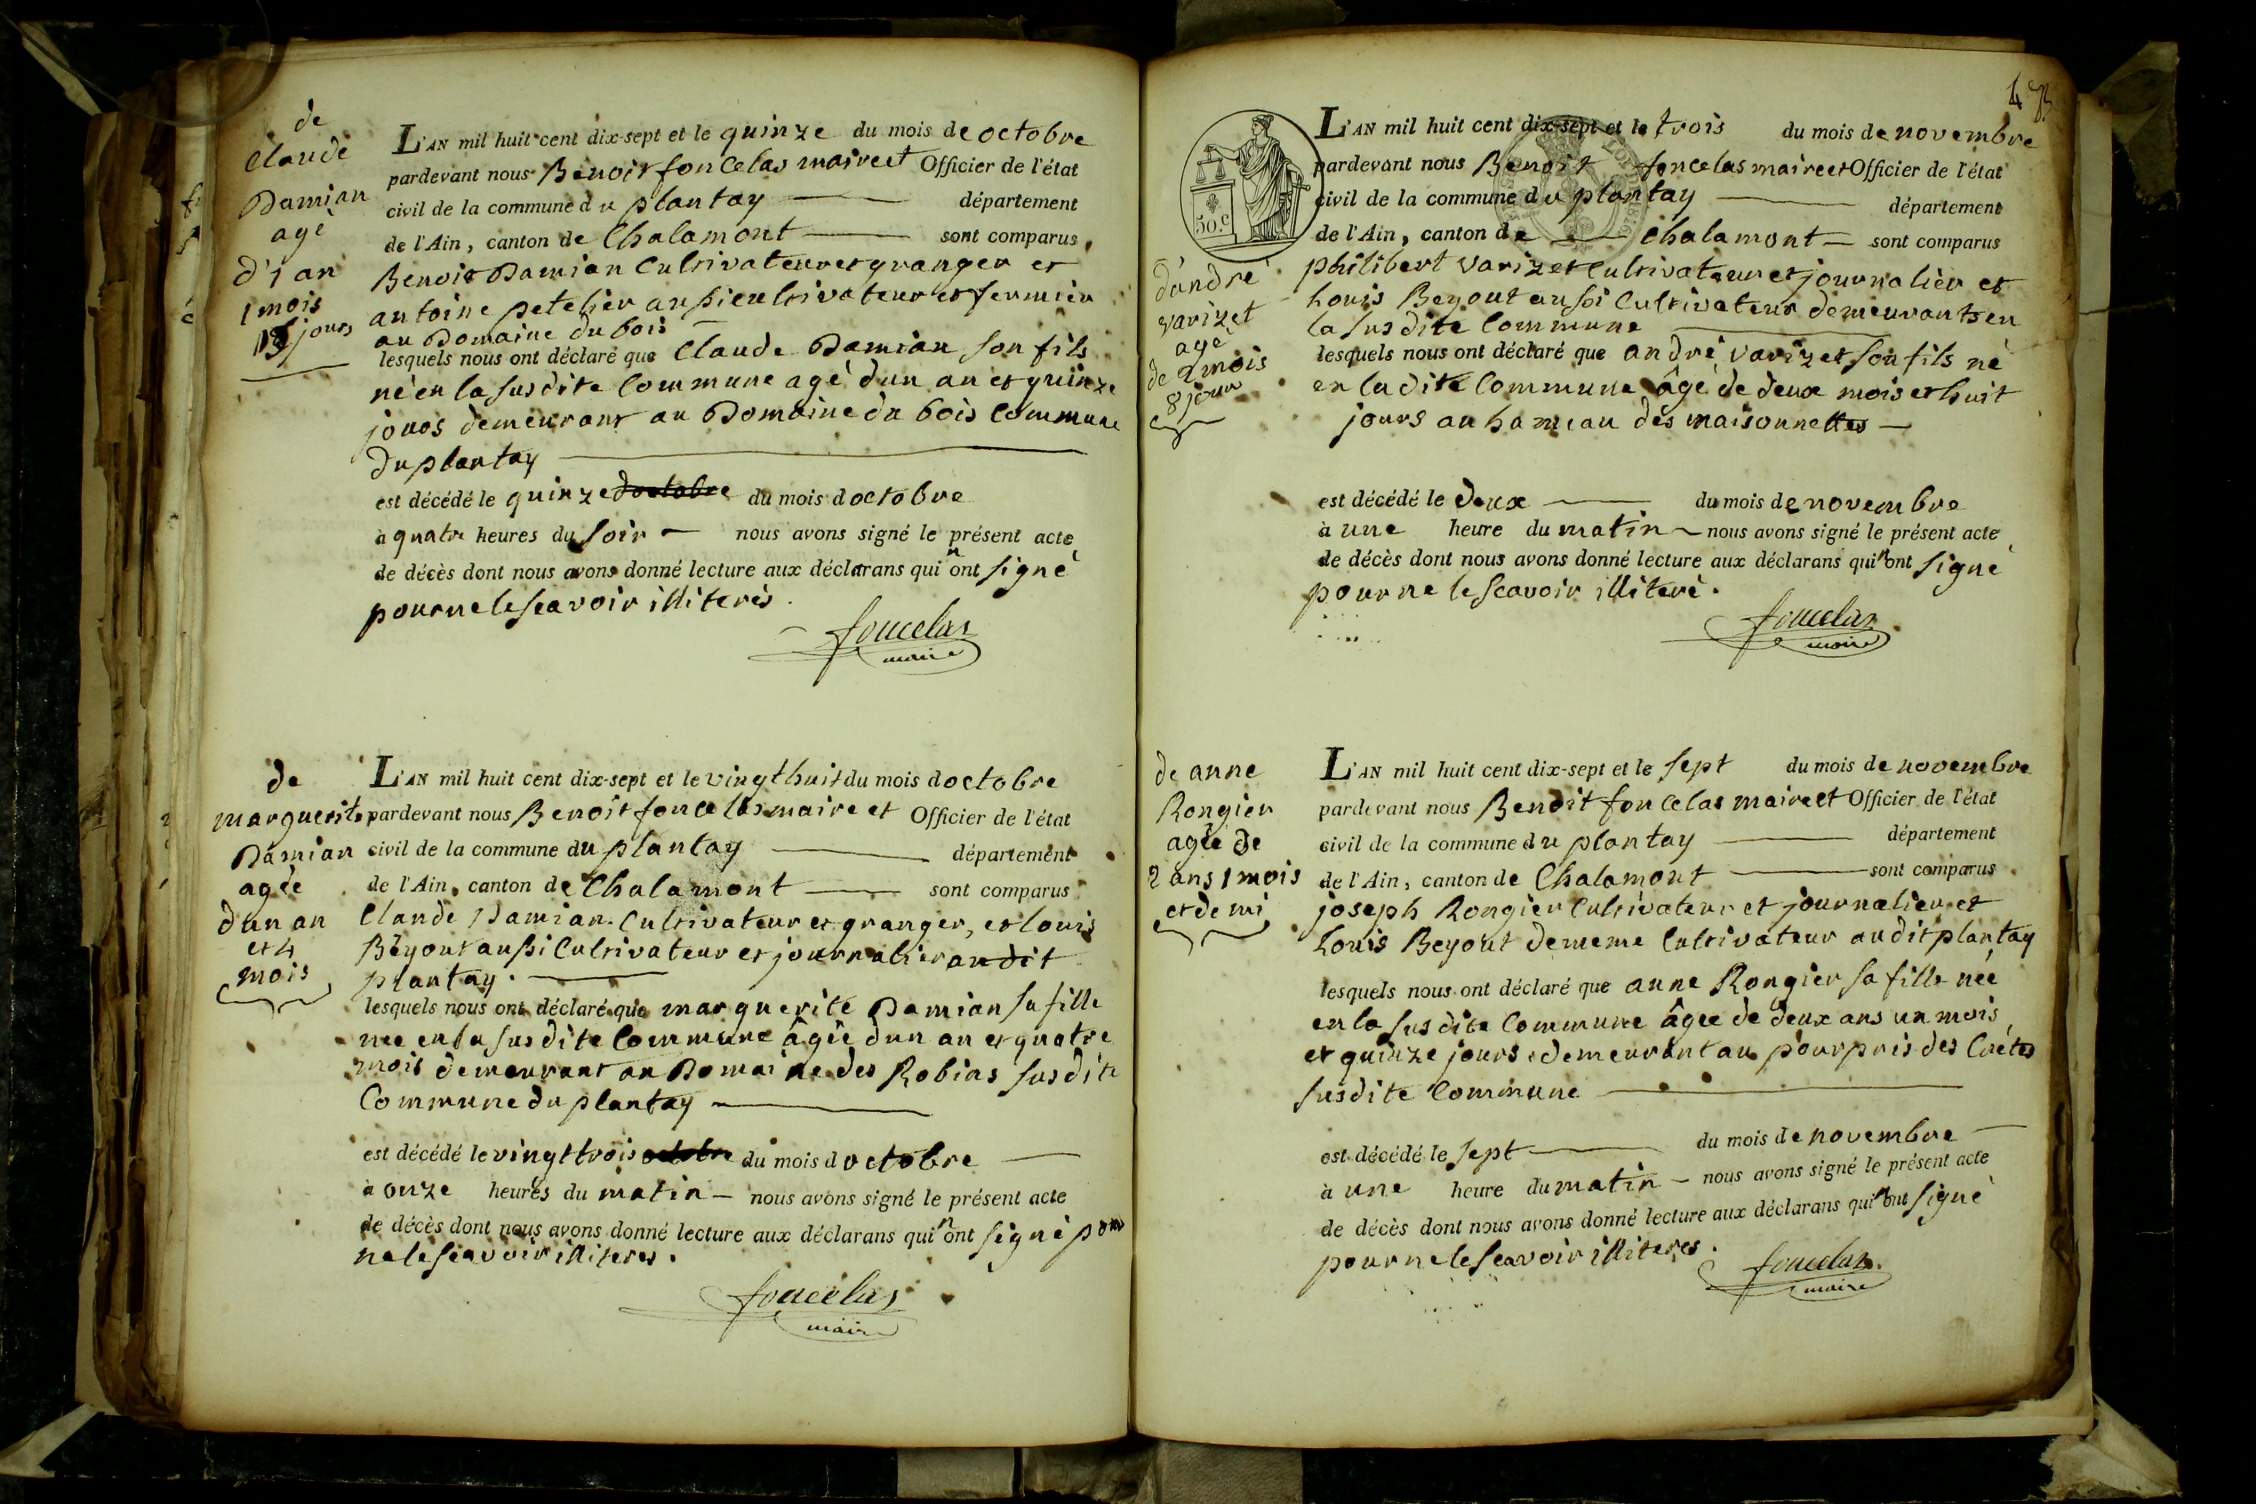 de
Claude
Damian
agé
d'1 an
1 mois
15 jours
L'AN mil huit cent dix-sept et le quinze du mois de octobre
pardevant nous Benoit foncelas maire et Officier de l'état
civil de la commune du plantay département
de l'Ain, canton de Chalamont sont comparus
Benoit Damian Cultivateur et granger et
antoine petelier aussi cultivateur et fermier
au Domaine du bois
lesquels nous ont déclaré que Claude Damian son fils
né en la susdite Commune agé dun an et quinze
jours demeurant au Domaine du bois Commune
du plantay
est décédé le quinze doctobre du mois doctobre
à quatre heures du soir nous avons signé le présent acte
de décès dont nous avons donné lecture aux déclarans qui n'ont signé
pour ne le scavoir illiterés.
foncelas
maire
de
marguerite
Damian
agée
d'un an
et 4
mois
L'AN mil huit cent dix-sept et le vingt huit du mois doctobre
pardevant nous Benoit foncelas maire et Officier de l'état
civil de la commune du plantay département
de l'Ain, canton de Chalamont sont comparus
Claude Damian Cultivateur et granger, et louis
Beyout aussi Cultivateur et journalier audit
plantay.
lesquels nous ont déclaré que marguerite Damian sa fille
née en la susdite Commune âgée dun an et quatre
mois demeurant au Domaine des Robias susdite
Commune du plantay
est décédé le vingt trois octobre du mois doctobre
à onze heures du matin nous avons signé le présent acte
de décès dont nous avons donné lecture aux déclarans qui n'ont signé pour
ne le scavoir illiteres.
foncelas
maire
43
50.c
L'AN mil huit cent dix-sept et le trois du mois de novembre
pardevant nous Benoit foncelas maire et Officier de l'état
civil de la commune du plantay département
de l'Ain, canton de Chalamont sont comparus
d'andré
varizet
agé
de 2 mois
8 jours
philibert varizet Cultivateur et journalier et
Louis Beyout aussi Cultivateur demeurants en
la susdite Commune
lesquels nous ont déclaré que andré varizet son fils né
en ladite Commune âgé de deux mois et huit
jours au hameau des maisonnettes
est décédé le deux du mois de novembre
à une heure du matin nous avons signé le présent acte
de décès dont nous avons donné lecture aux déclarans qui n'ont signé
pour ne le scavoir illiteré.
foncelas
maire
de anne
Rongier
agée de
2 ans 1 mois
et demi
L'AN mil huit cent dix-sept et le sept du mois de novembre
pardevant nous Benoit foncelas maire et Officier de l'état
civil de la commune du plantay département
de l'Ain, canton de Chalamont sont comparus
joseph Rongier Cultivateur et journalier et
Louis Beyout dememe Cultivateur audit plantay
lesquels nous ont déclaré que anne Rongier sa fille née
en la susdite Commune âgée de deux ans un mois
et quinze jours demeurant au pourpris des
susdite Commune
est décédé le sept du mois de novembre
à une heure du matin nous avons signé le présent acte
de décès dont nous avons donné lecture aux déclarans qui n'ont signé
pour ne le scavoir illiteres.
foncelas
maire